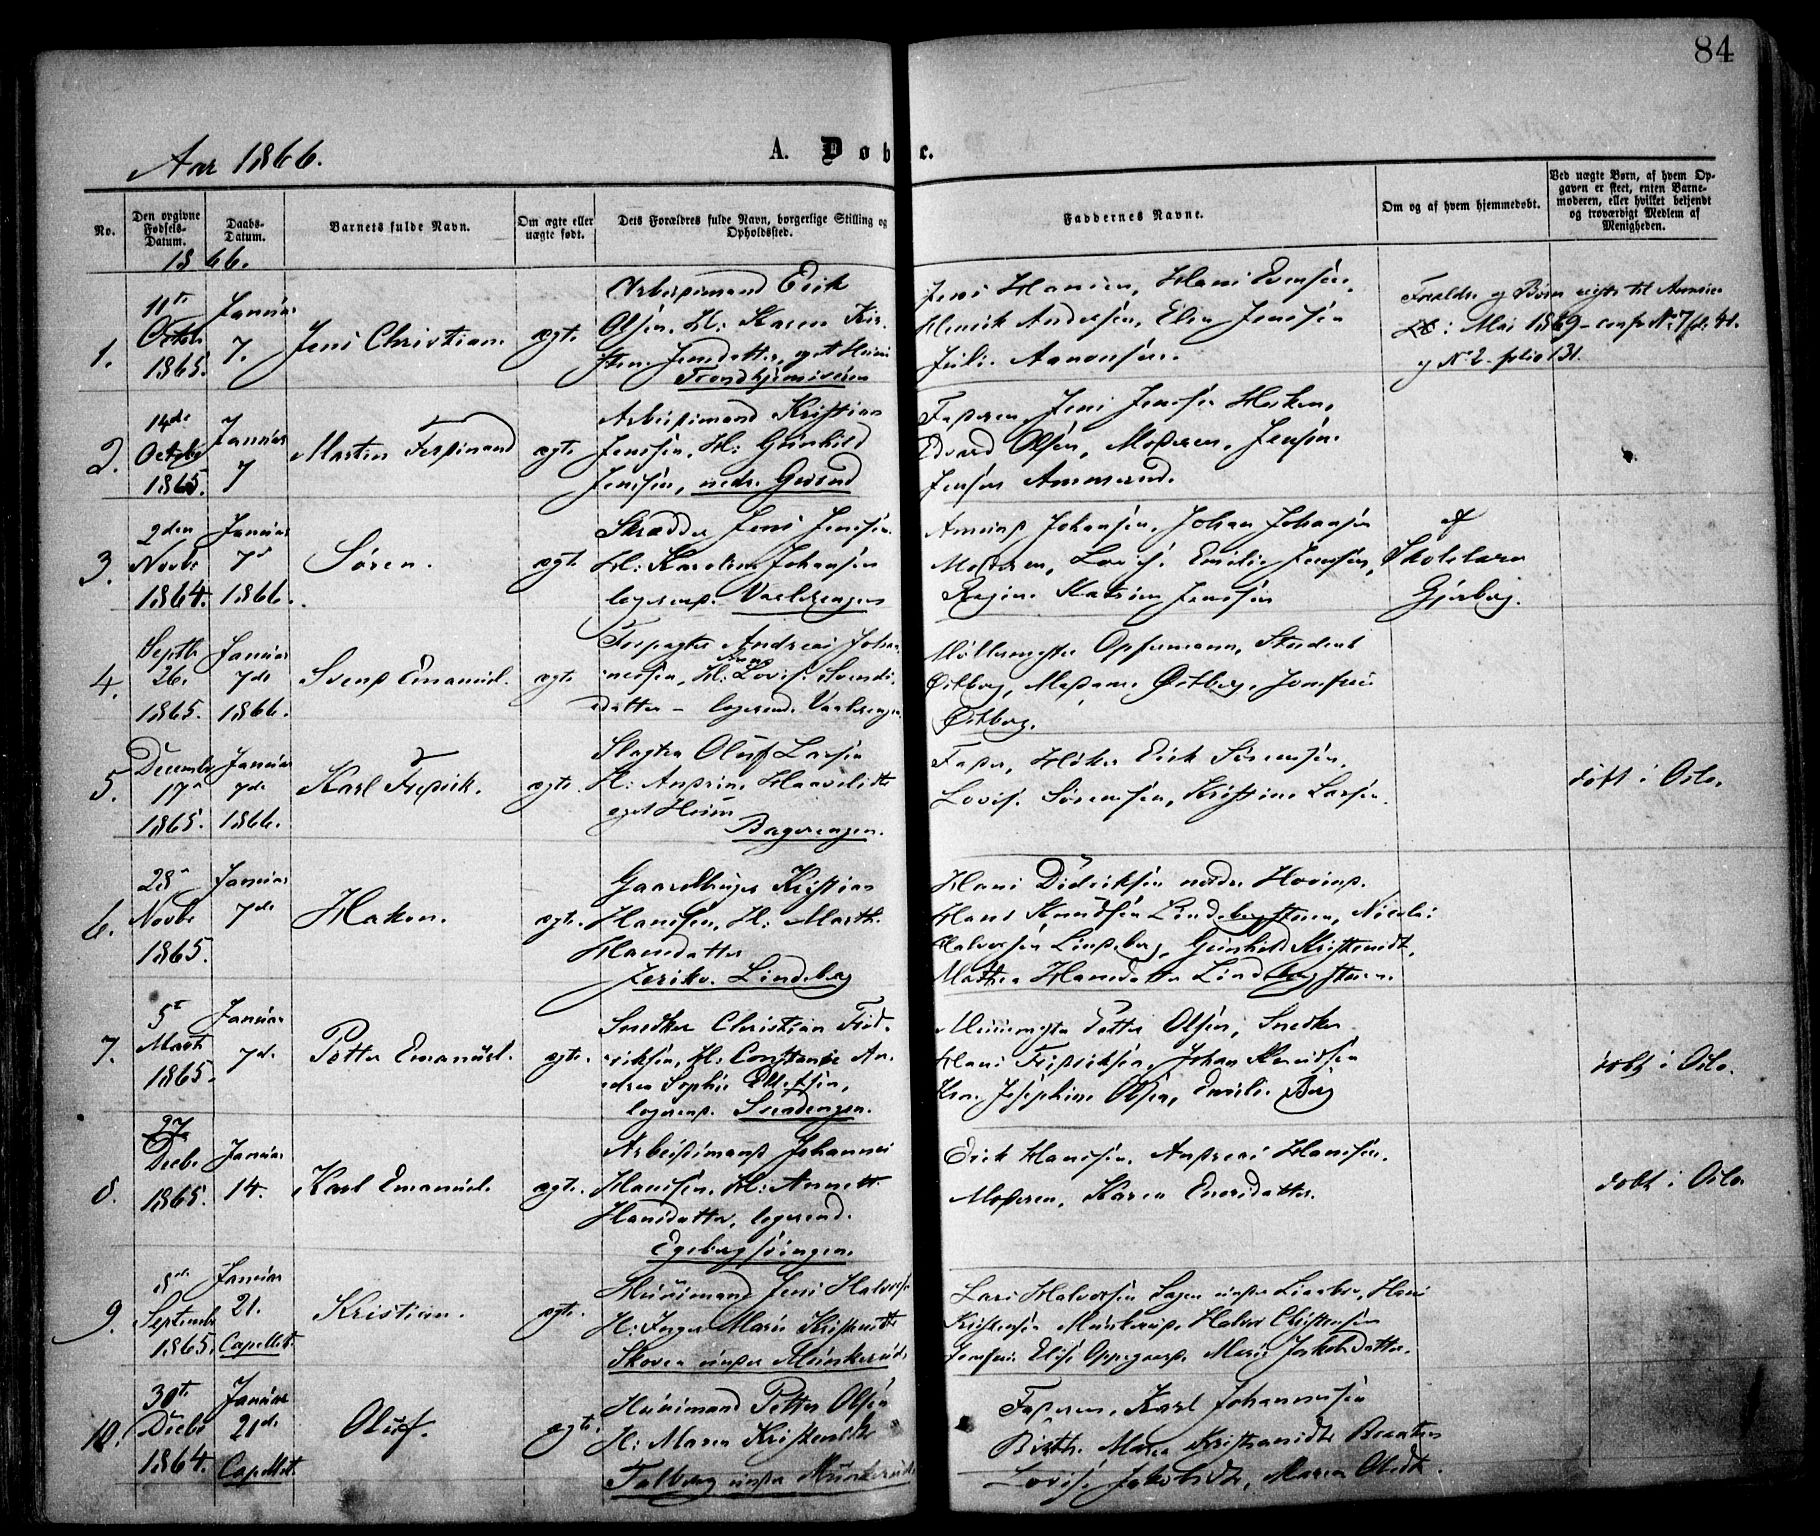 84
Aar 1866.
A. Døbte.
No.
Den opgivne Fødsels-Datum.
Daabs-Datum.
Barnets fulde Navn.
Om ægte eller uægte født.
Dets Forældres fulde Navn, borgerlige Stilling og Opholdssted.
Faddernes Navne.
Om og af hvem hjemmedøbt.
Ved uægte Børn, af hvem Opgaven er skeet, enten Barnemoderen, eller hvilket betjendt og troværdigt Medlem af Menigheden.
1866.
1.
11te Octob. 1865.
Januar 7.
Jens Christian.
ægte
Arbeidsmand Erik
Olsen, H: Karen Kir-
sten Jensdatter, eget Huus
Trondhjemsveien
Jens Hansen, Hans Evensen,
Henrik Andersen, Elen Jensen
Juli Aanonsen.
Forældre og Børn reist til Amerika
Mai 1869 - conf. No 7 fol. 41.
og No 2 folio 131.
2.
14de Octobr 1865.
Januar 7
Martin Ferdinand
ægte
Arbeidsmand Kristian
Jensen, H: Gunhild
Jensen, nedre Grønd
Faderen Jens Jensen Haken,
Edvard Olsen, Moderen, Jensine
Jensen Ammerud.
3.
2den Novbr 1864.
Januar 7d 1866.
Søren.
ægte
Skrædder Jens Jensen
H: Karoline Johansen
logerend. Vaalerengen
Amund Johansen, Johan Johansen
Moderen, Lovise Emilie Jensen,
Regine Katrine Jensen
af
Skolelærer
Gjerberg.
4.
Septbr 26. 1865.
Januar 7de 1866.
Svend Emanuel.
ægte
Forpagter Andreas Johan-
nessen, H: Lovise Svends-
datter - logerend. Vaalerengen
Møllermester Oppermann, Student
Østberg, Madame Østberg, Jomfru
Østberg.
5.
December 17d 1865.
Januar 7de 1866.
Karl Fredrik.
ægte.
Slagter Oluf Larsen
H: Andrine Haavelsdtr
eget Huus
Bagerengen.
Fader, Høker Erik Sørensen,
Lovise Sørensen, Kristine Larsen.
døbt i Oslo.
6.
28 Novbr 1865.
Januar 7de
Haken.
ægte.
Gaardbruger Kristian
Hansen, H: Marthe
Hansdatter
Jeriko. Lindeberg
Hans Didriksen nedre Hovind.
Hans Knudsen Lindebergsteen, Nicolai
Halvorsen Lindeberg, Gunhild Kristensdt.
Mathea Hansdatter Lindebergsteen.
7.
5t Marts 1865.
Januar 7de
Petter Emanuel.
ægte.
Snedker Christian Fred-
riksen, H: Constance An-
drea Sophie Ellefsen,
logerend. Svendengen.
Muurmester Petter Olsen, Snedker
Hans Fredriksen, Johan Knudsen
Kone Josephine Olsen, Emilie Berg
døbt i Oslo.
8.
27 Decbr 1865.
Januar 14.
Karl Emanuel.
ægte.
Arbeidsmand Johannes
Hansen. H: Annette
Hansdatter, logerend.
Egeberg
Erik Hansen, Andreas Hansen,
Moderen, Karen Enersdatter.
døbt i Oslo.
9.
8de September 1865.
Januar 21. Capellet.
Kristian.
ægte.
Huusmand Jens Halvorsen
H: Inger Marie Kristensdtr
Skoven under Munkerud.
Lars Halvorsen Sagen under Liabro, Hans
Kristensen Munkerud, Halvor Christensen
Jomfru Elise Oppegaard, Marie Jakobsdatter.
10.
30te Decbr 1864.
Januar 21de Capellet.
Oluf.
ægte.
Huusmand Petter Olsen
H: Maren Kristensdtr
Talberg under Munkerud
Faderen, Karl Johannesen
Birthe Marie Kristiansdtr
Lovise Jakobsdtr, Maren Olsdtr.